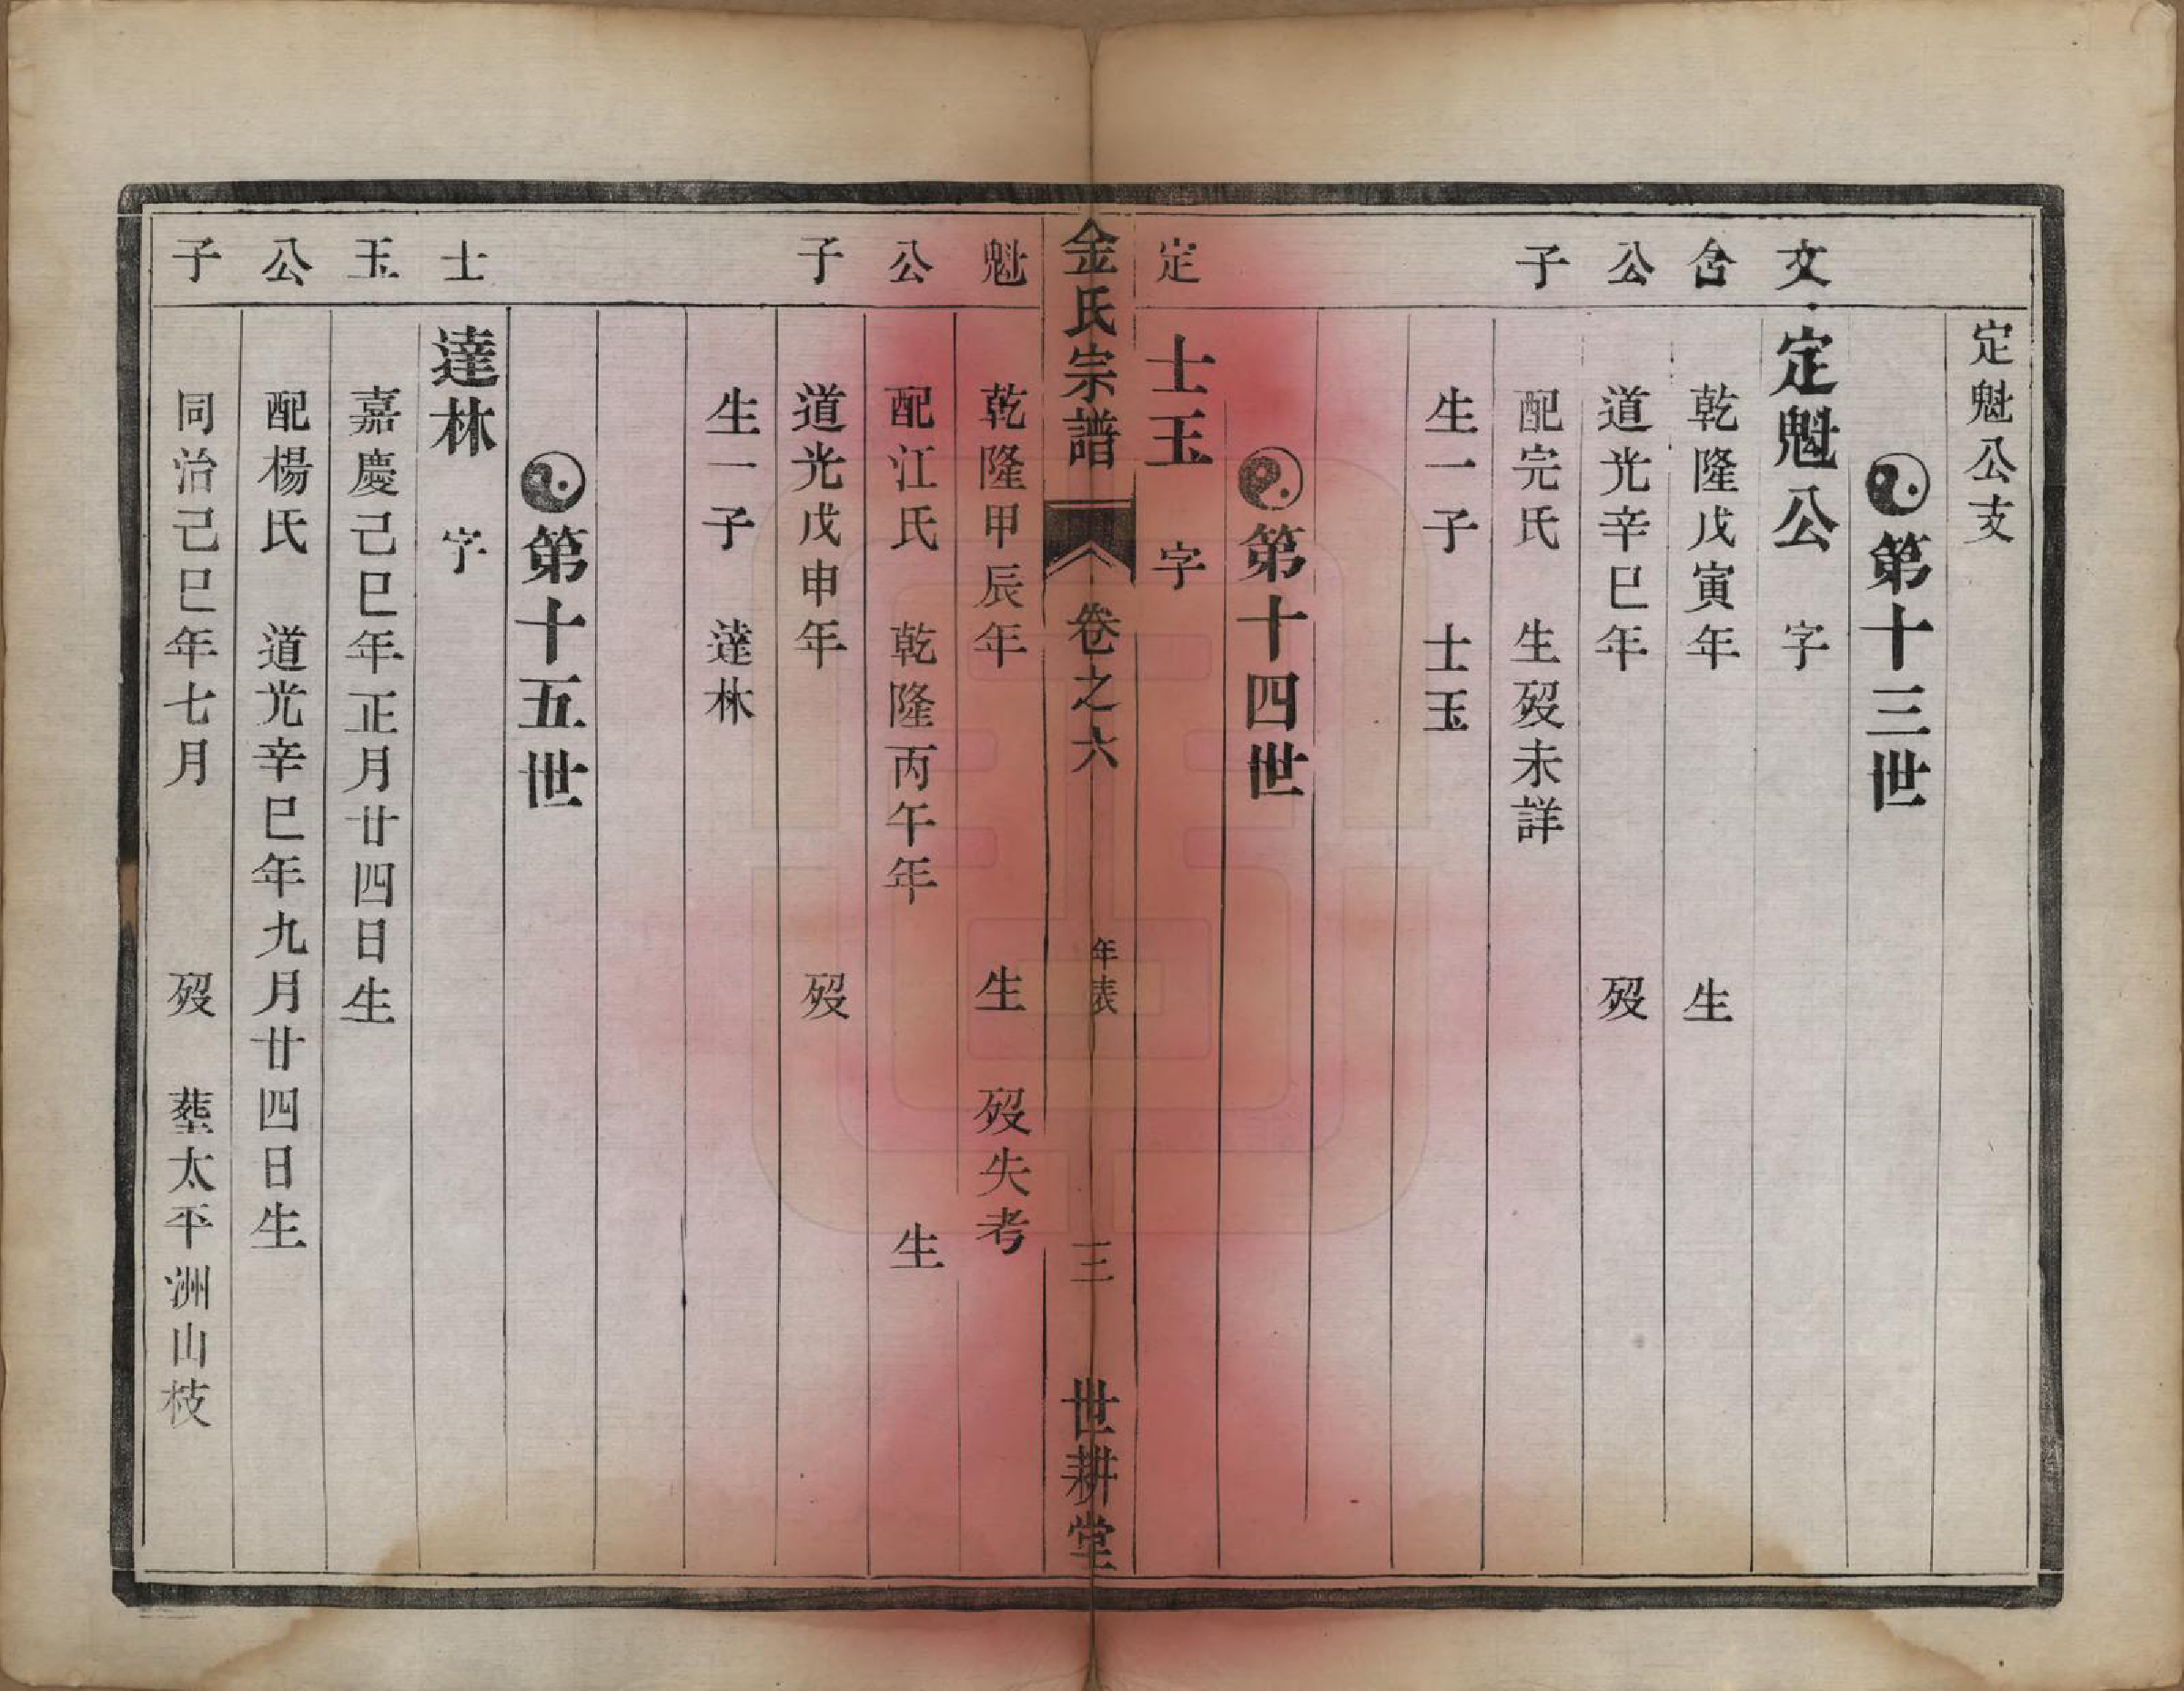 定魁公支
第十三世
文 定魁公 字
含 乾隆戊寅年 生
公 道光辛巳年 歿
子 配完氏 生歿未詳
生一子 士玉
第十四世
定 士玉 字
金氏宗譜 卷之六 年表 三 世耕堂
魁 乾隆甲辰年 生 歿失考
公 配江氏 乾隆丙午年 生
子 道光戊申年 歿
生一子 達林
第十五世
士 達林 字
玉 嘉慶己巳年正月廿四日生
公 配楊氏 道光辛巳年九月廿四日生
子 同治己巳年七月 歿 塟太平洲山枝